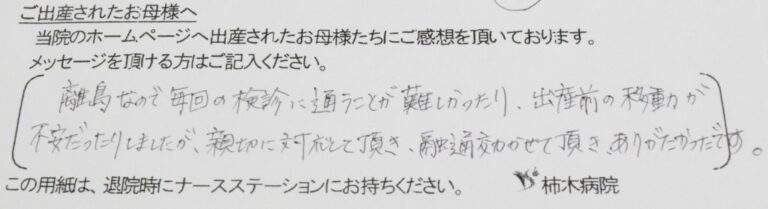 ご出産されたお母様へ
当院のホームページへ出産されたお母様たちにご感想を頂いております。
メッセージを頂ける方はご記入ください。
離島なので毎回の検診に通うことが難しかったり、出産前の移動が
不安だったりしましたが、親切に対応して頂き、融通効かせて頂き、ありがたかったです。
この用紙は、退院時にナースステーションにお持ちください。 柿木病院